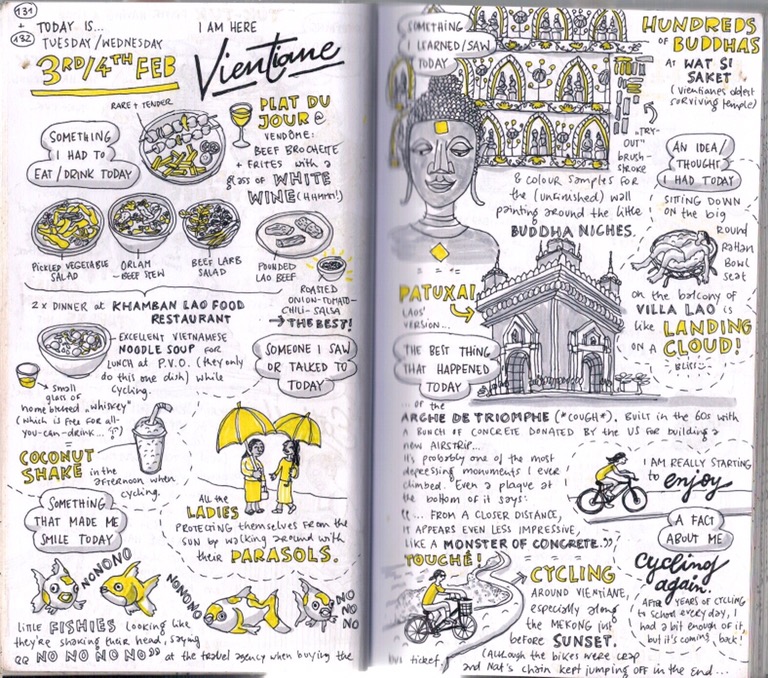 131
+
132
TODAY IS...
TUESDAY/WEDNESDAY
3RD/4TH FEB
I AM HERE
Vientiane
SOMETHING
I HAD TO
EAT/DRINK TODAY
RARE + TENDER
PLAT DU
JOUR @
VENDÔME:
BEEF BROCHETTE
+ FRITES with a
glass of WHITE
WINE (HHMM!)
PICKLED VEGETABLE
SALAD
ORLAM
BEEF STEW
BEEF LARB
SALAD
POUNDED
LAO BEEF
ROASTED
ONION-TOMATO-
CHILI-SALSA
→ THE BEST!
2x DINNER at KHAMBAN LAO FOOD
RESTAURANT
EXCELLENT VIETNAMESE
NOODLE SOUP FOR
LUNCH at P.V.O. (they only
do this one dish) while
cycling.
+ small
glass of
home brewed "whiskey"
(which is free for all-
you-can-drink...
COCONUT
SHAKE in the
afternoon when
cycling.
SOMEONE I SAW
OR TALKED TO
TODAY
All the
LADIES
PROTECTING themselves from the
SUN by walking around with
their PARASOLS.
SOMETHING
THAT MADE ME
SMILE TODAY
NONONO
NONONO
NO
NO
NO
little FISHIES looking like
they're shaking their head, saying
"NO NO NO NO" at the travel agency when buying the
bus ticket.
SOMETHING
I LEARNED/SAW
TODAY
HUNDREDS
OF BUDDHAS
At WAT SI
SAKET
(Vientianes oldest
surviving temple)
"TRY-
OUT"
brush-
stroke
& colour samples for
the (unfinished) wall
painting around the little
BUDDHA NICHES.
AN IDEA/
THOUGHT
I HAD TODAY
SITTING DOWN
ON the big
round
Rattan
Bowl
seat
on the balcony of
VILLA LAO is
like LANDING
ON A CLOUD!
Bliss
PATUXAI
LAOS'
VERSION...
THE BEST THING
THAT HAPPENED
TODAY
... of the
ARCHE DE TRIOMPHE (*COUGH*), BUILT in the 60s with
a BUNCH OF CONCRETE DONATED BY the US FOR building a
new AIRSTRIP...
It's probably one of the most
depressing monuments I ever
climbed. Even a plaque at
the bottom of it says:
"... FROM A CLOSER DISTANCE,
IT APPEARS EVEN LESS IMPRESSIVE,
LIKE A MONSTER OF CONCRETE."
TOUCHÉ!
I AM REALLY STARTING
to enjoy
A FACT
ABOUT ME
cycling
again.
AFTER YEARS OF CYCLING
to school everyday, I
had a bit enough of it.
but it's coming back!
CYCLING
AROUND VIENTIANE,
especially along
the MEKONG just
before SUNSET.
(Although the bikes were crap
and Nat's chain kept jumping off in the end...